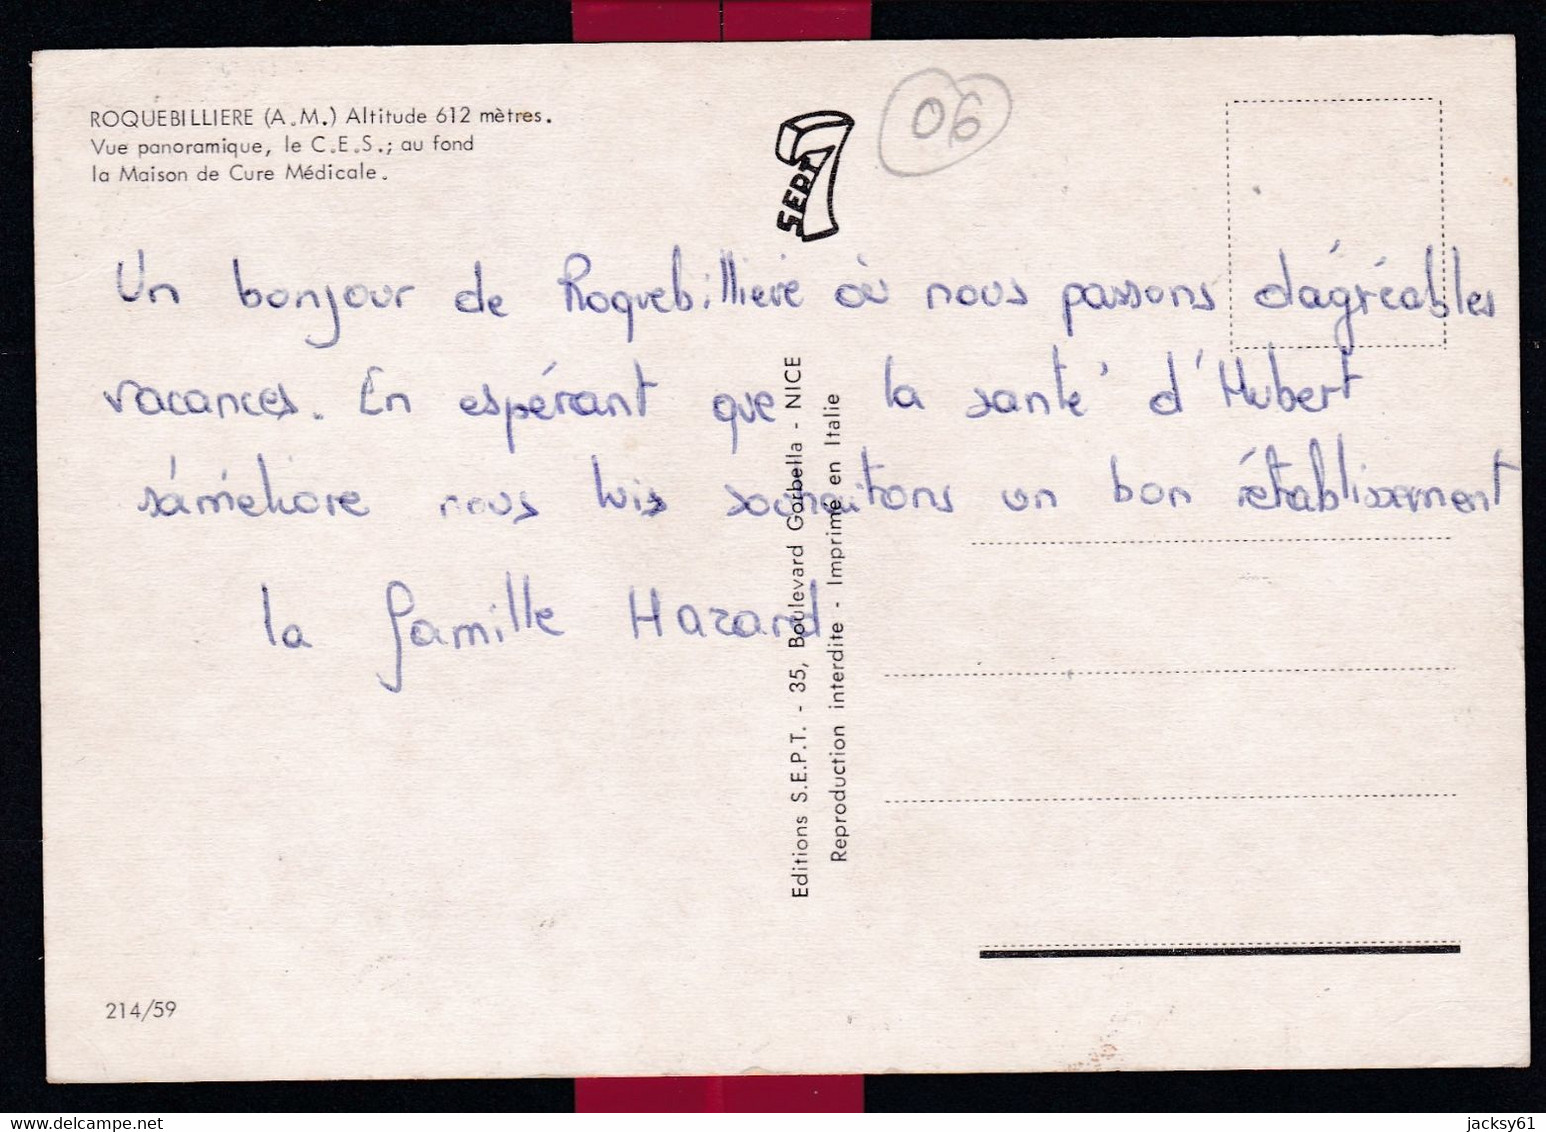 ROQUEBILLIERE (A.M.) Altitude 612 mètres.
Vue panoramique, le C.E.S.; au fond
la Maison de Cure Médicale.
SEPT 7
06
Un bonjour de Roquebillière où nous passons d'agréables
vacances. En espérant que la santé d'Hubert
s'améliore nous luis souhaitons un bon rétablissement
la famille Hazard
Editions S.E.P.T. - 35, Boulevard Gorbella - NICE
Reproduction interdite - Imprimé en Italie
214/59
delcampe.net
jacksy61